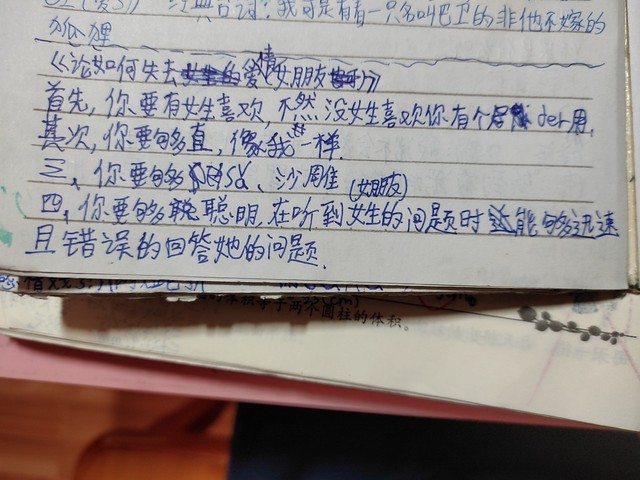 经典台词:我可是有着一只名叫巴卫的非他不嫁的
狐狸
《论如何失去爱情(女朋友)》
首先,你要有女生喜欢,不然没女生喜欢你有个der用,
其次,你要够直,像我一样.
三、你要够沙雕(女朋友)
四、你要够聪明,在听到女生的问题时能够迅速
且错误的回答她的问题.
的体积等于两个圆柱的体积。